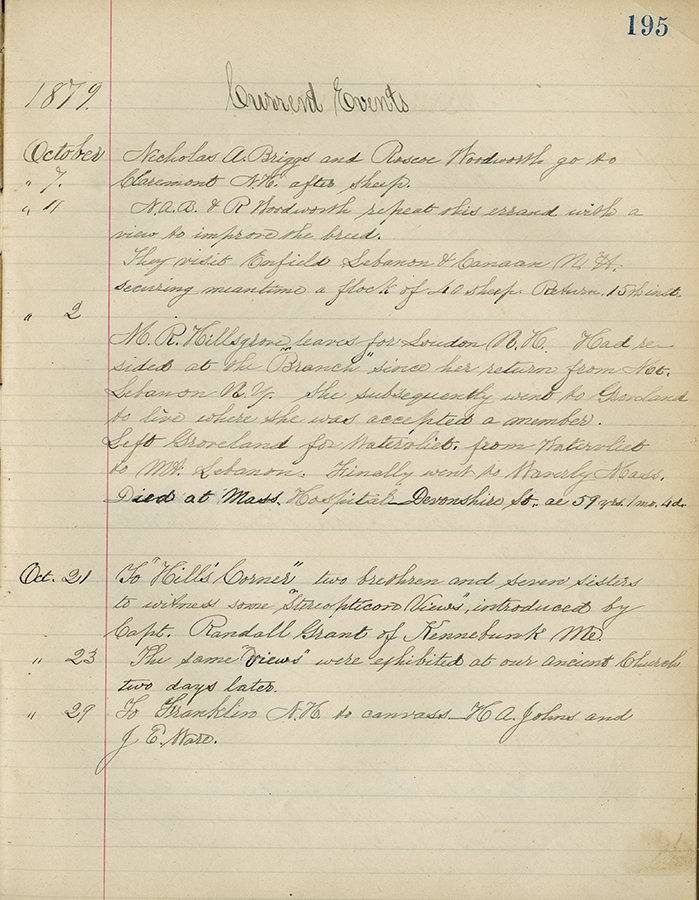 195
1879. Current Events
October Nicholas A. Briggs and Roscoe Woodworth go to
" 7. Claremont N.H. after sheep.
" 11 N.A.B. & R Woodworth repeat this errand with a
view to improve the breed.
They visit Enfield Lebanon & Canaan N.H.
securing meantime a flock of 40 sheep. Return, 15th inst.
" 2
M. R. Hillsgrove, leaves for Loudon N.H. Had re-
sided at the "Branch" since her return from Mt.
Lebanon N.Y. She subsequently went to Groveland
to live where she was accepted a member.
Left Groveland for Watervliet. from Watervliet
to Mt. Lebanon. Finally went to Waverly Mass.
Died at Mass. Hospital - Devonshire St. ae 59 yrs. 1 mo. 4 d.
Oct. 21 To "Hill's Corner" two brethren and seven sisters
to witness some "Stereopticon Views", introduced by
Capt. Randall Grant of Kennebunk Me.
" 23 The same "Views" were exhibited at our ancient Church
two days later.
" 29 To Franklin N.H. to canvass - H A. Johns and
J. E. Ward.